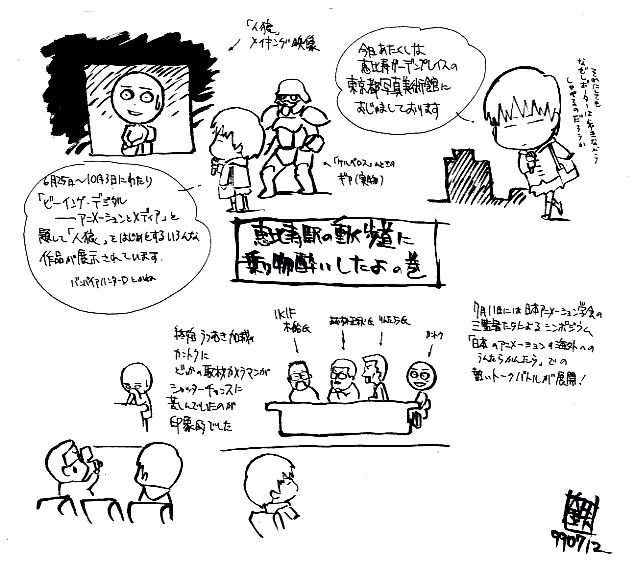 「人狼」
メイキング映像
今日あたくしは
恵比寿ガーデンプレイスの
東京都写真美術館に
おじゃましております
それにしても
なぜレポーターは
6月25日〜10月3日にわたり
「ビーイング・デジタル
――アニメーションとメディア」と
題して「人狼」をはじめとするいろんな
作品が展示されています.
バンパイアハンターDとかね
「ケルベロス」のときの
ギア(実物)
恵比寿駅の動く歩道に
乗り物酔いしたよの巻
7月11日には日本アニメーション学会の
三監督たちによるシンポジウム、
「日本のアニメーションの海外への
うんたらかんたら」での
熱いトークバトルが展開!
終始うつむき加減な
カントクに
どっかの取材カメラマンが
シャッターチャンスに
苦しんでしたのが
印象的でした
IKIF
木船氏
カントク
990712